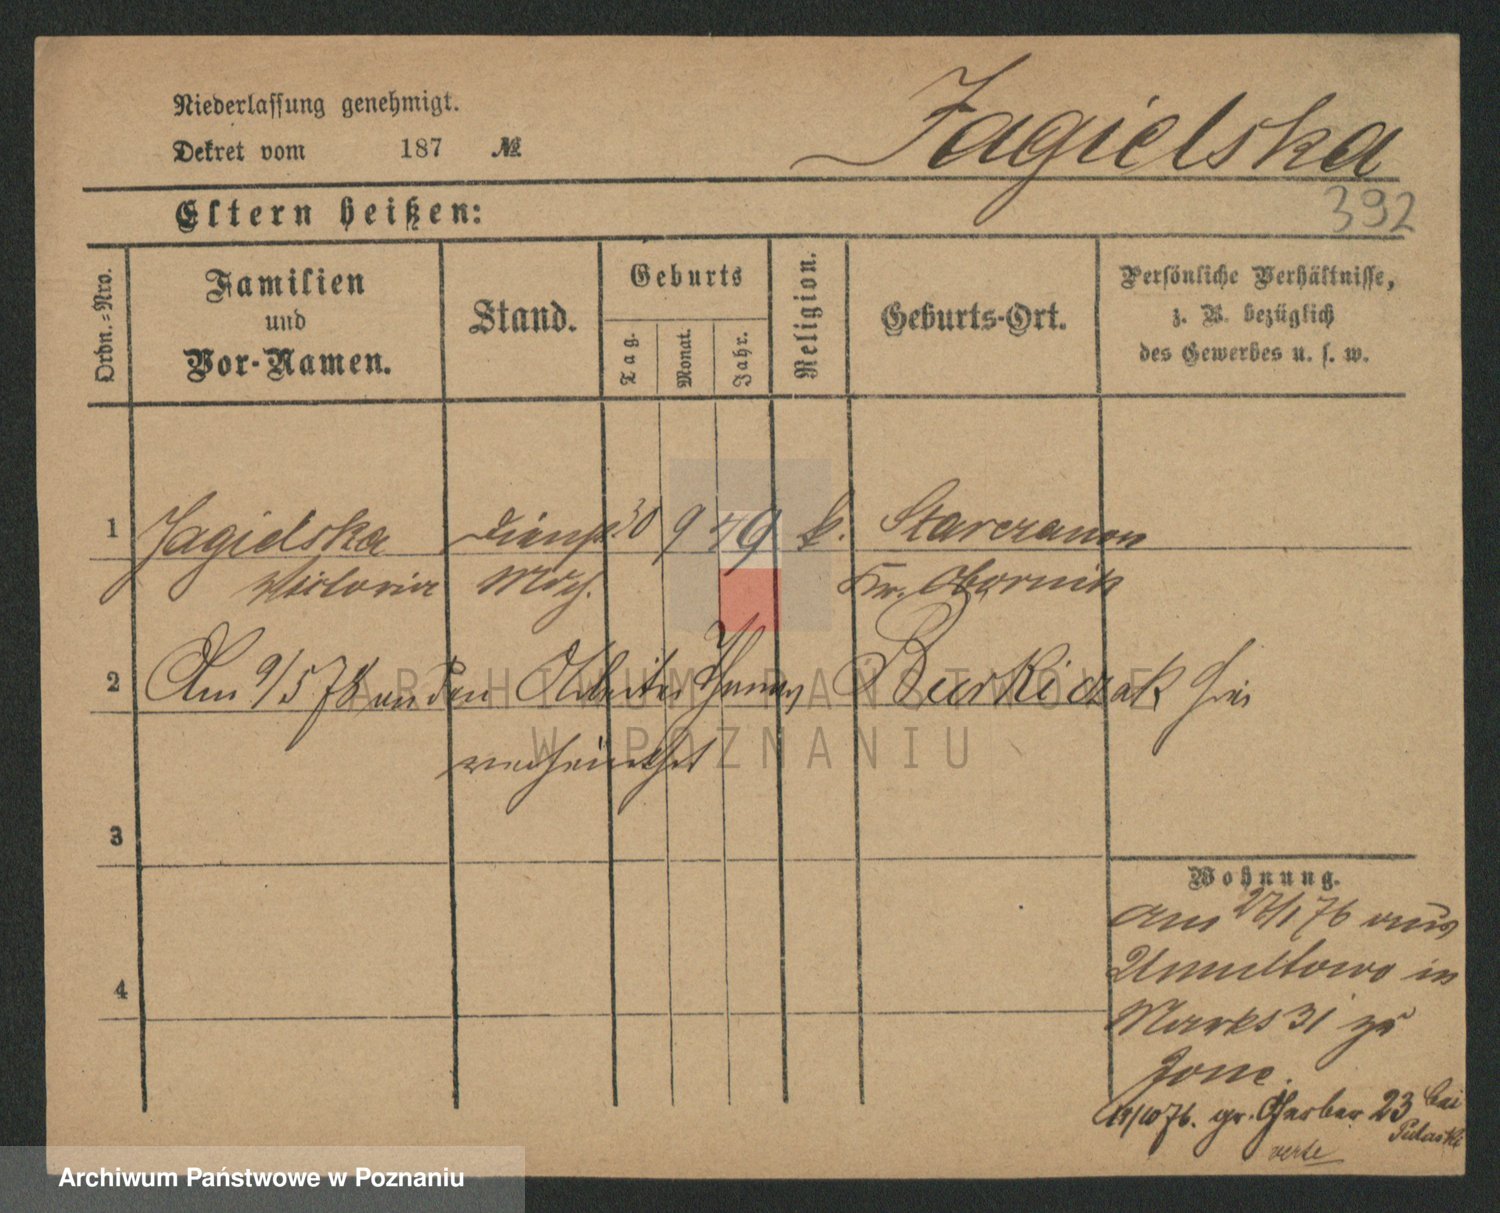 Niederlassung genehmigt.
Dekret vom 187 №
Jagielska
392
Eltern heißen:
Ordn.-Nro.
Familien
und
Vor-Namen.
Stand.
Geburts
Tag.
Monat.
Jahr.
Religion.
Geburts-Ort.
Persönliche Verhältnisse,
z. B. bezüglich
des Gewerbes u. s. w.
1 Jagielska Dienst 30 9 49 k. Starczanowo
Victoria Mdch. Kr. Obornik
2 Am 9/5 78 an den Arbeiter Burkiczak hier
verheirathet
3
4
Wohnung.
am 27/1 76 aus
Umultowo in
Markt 31 zu
10/76. gr. Gerber 23 bei
verte
ARCHIWUM PAŃSTWOWE
W POZNANIU
Archiwum Państwowe w Poznaniu